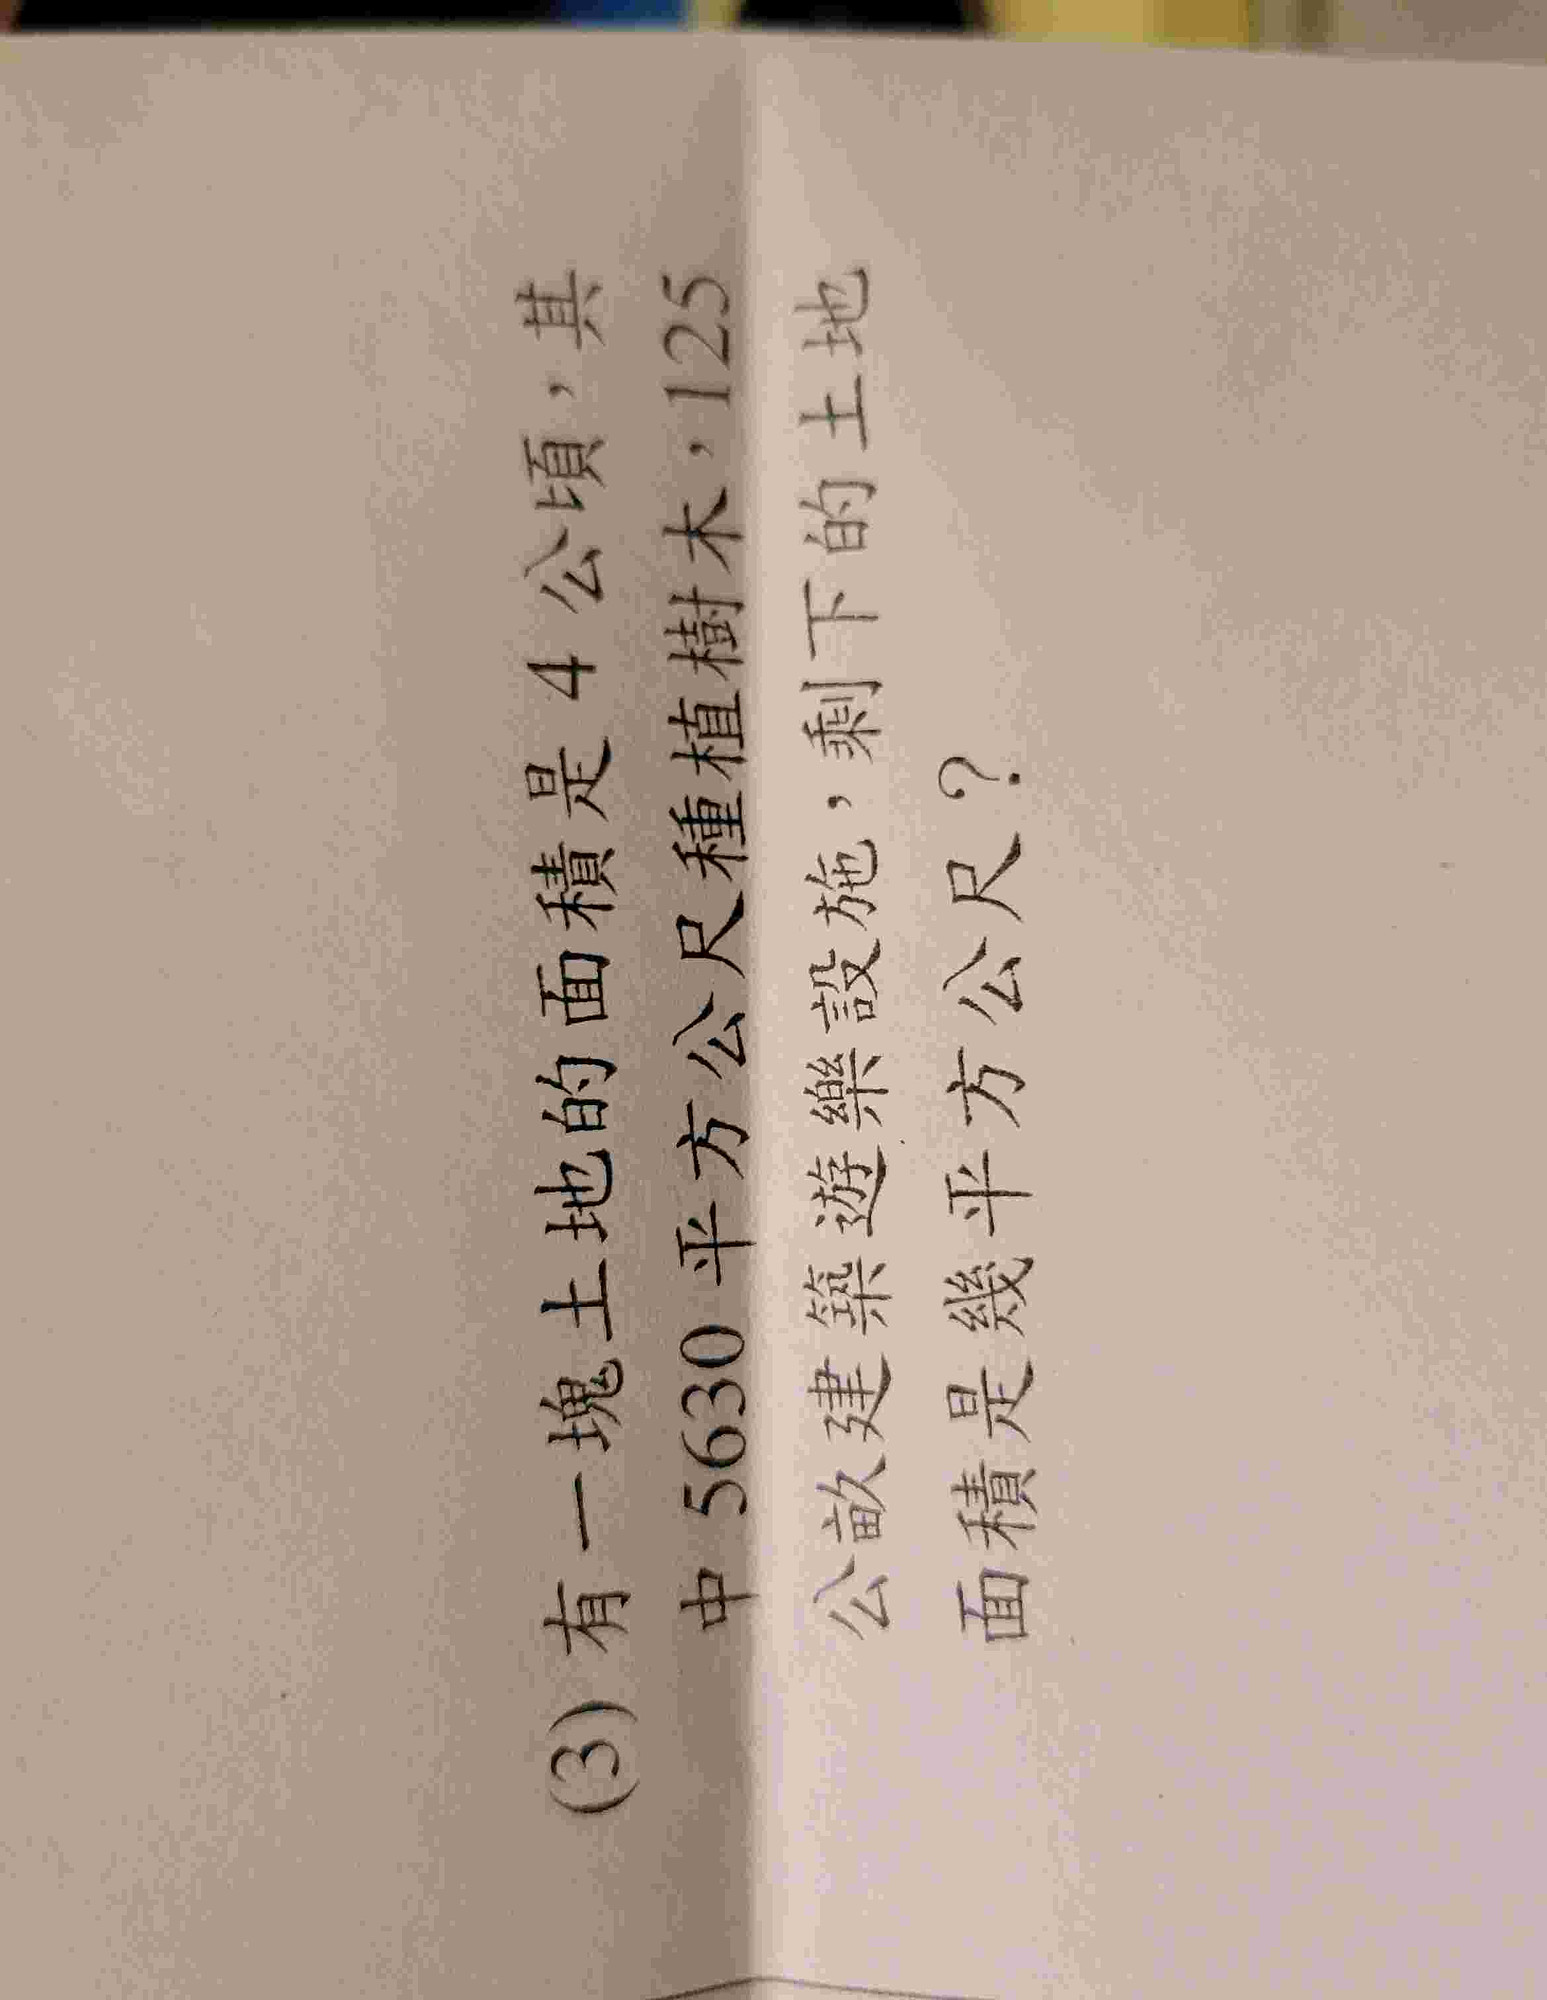 (3) 有一塊土地的面積是 4 公頃，其
中 5630 平方公尺種植樹木，125
公畝建築遊樂設施，剩下的土地
面積是幾平方公尺？